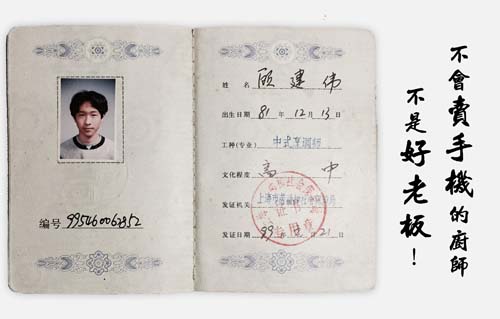 编号 99546006852
姓名 顾建伟
出生日期 81年12月13日
工种(专业) 中式烹调师
文化程度 高中
发证机关
发证日期 99年 月21日
证书
专用章
不會賣手機的廚師
不是好老板！